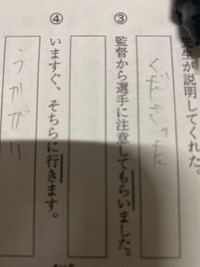 先生が説明してくれた。
くださった
③
監督から選手に注意してもらいました。
④
いますぐ、そちらに行きます。
うかがい